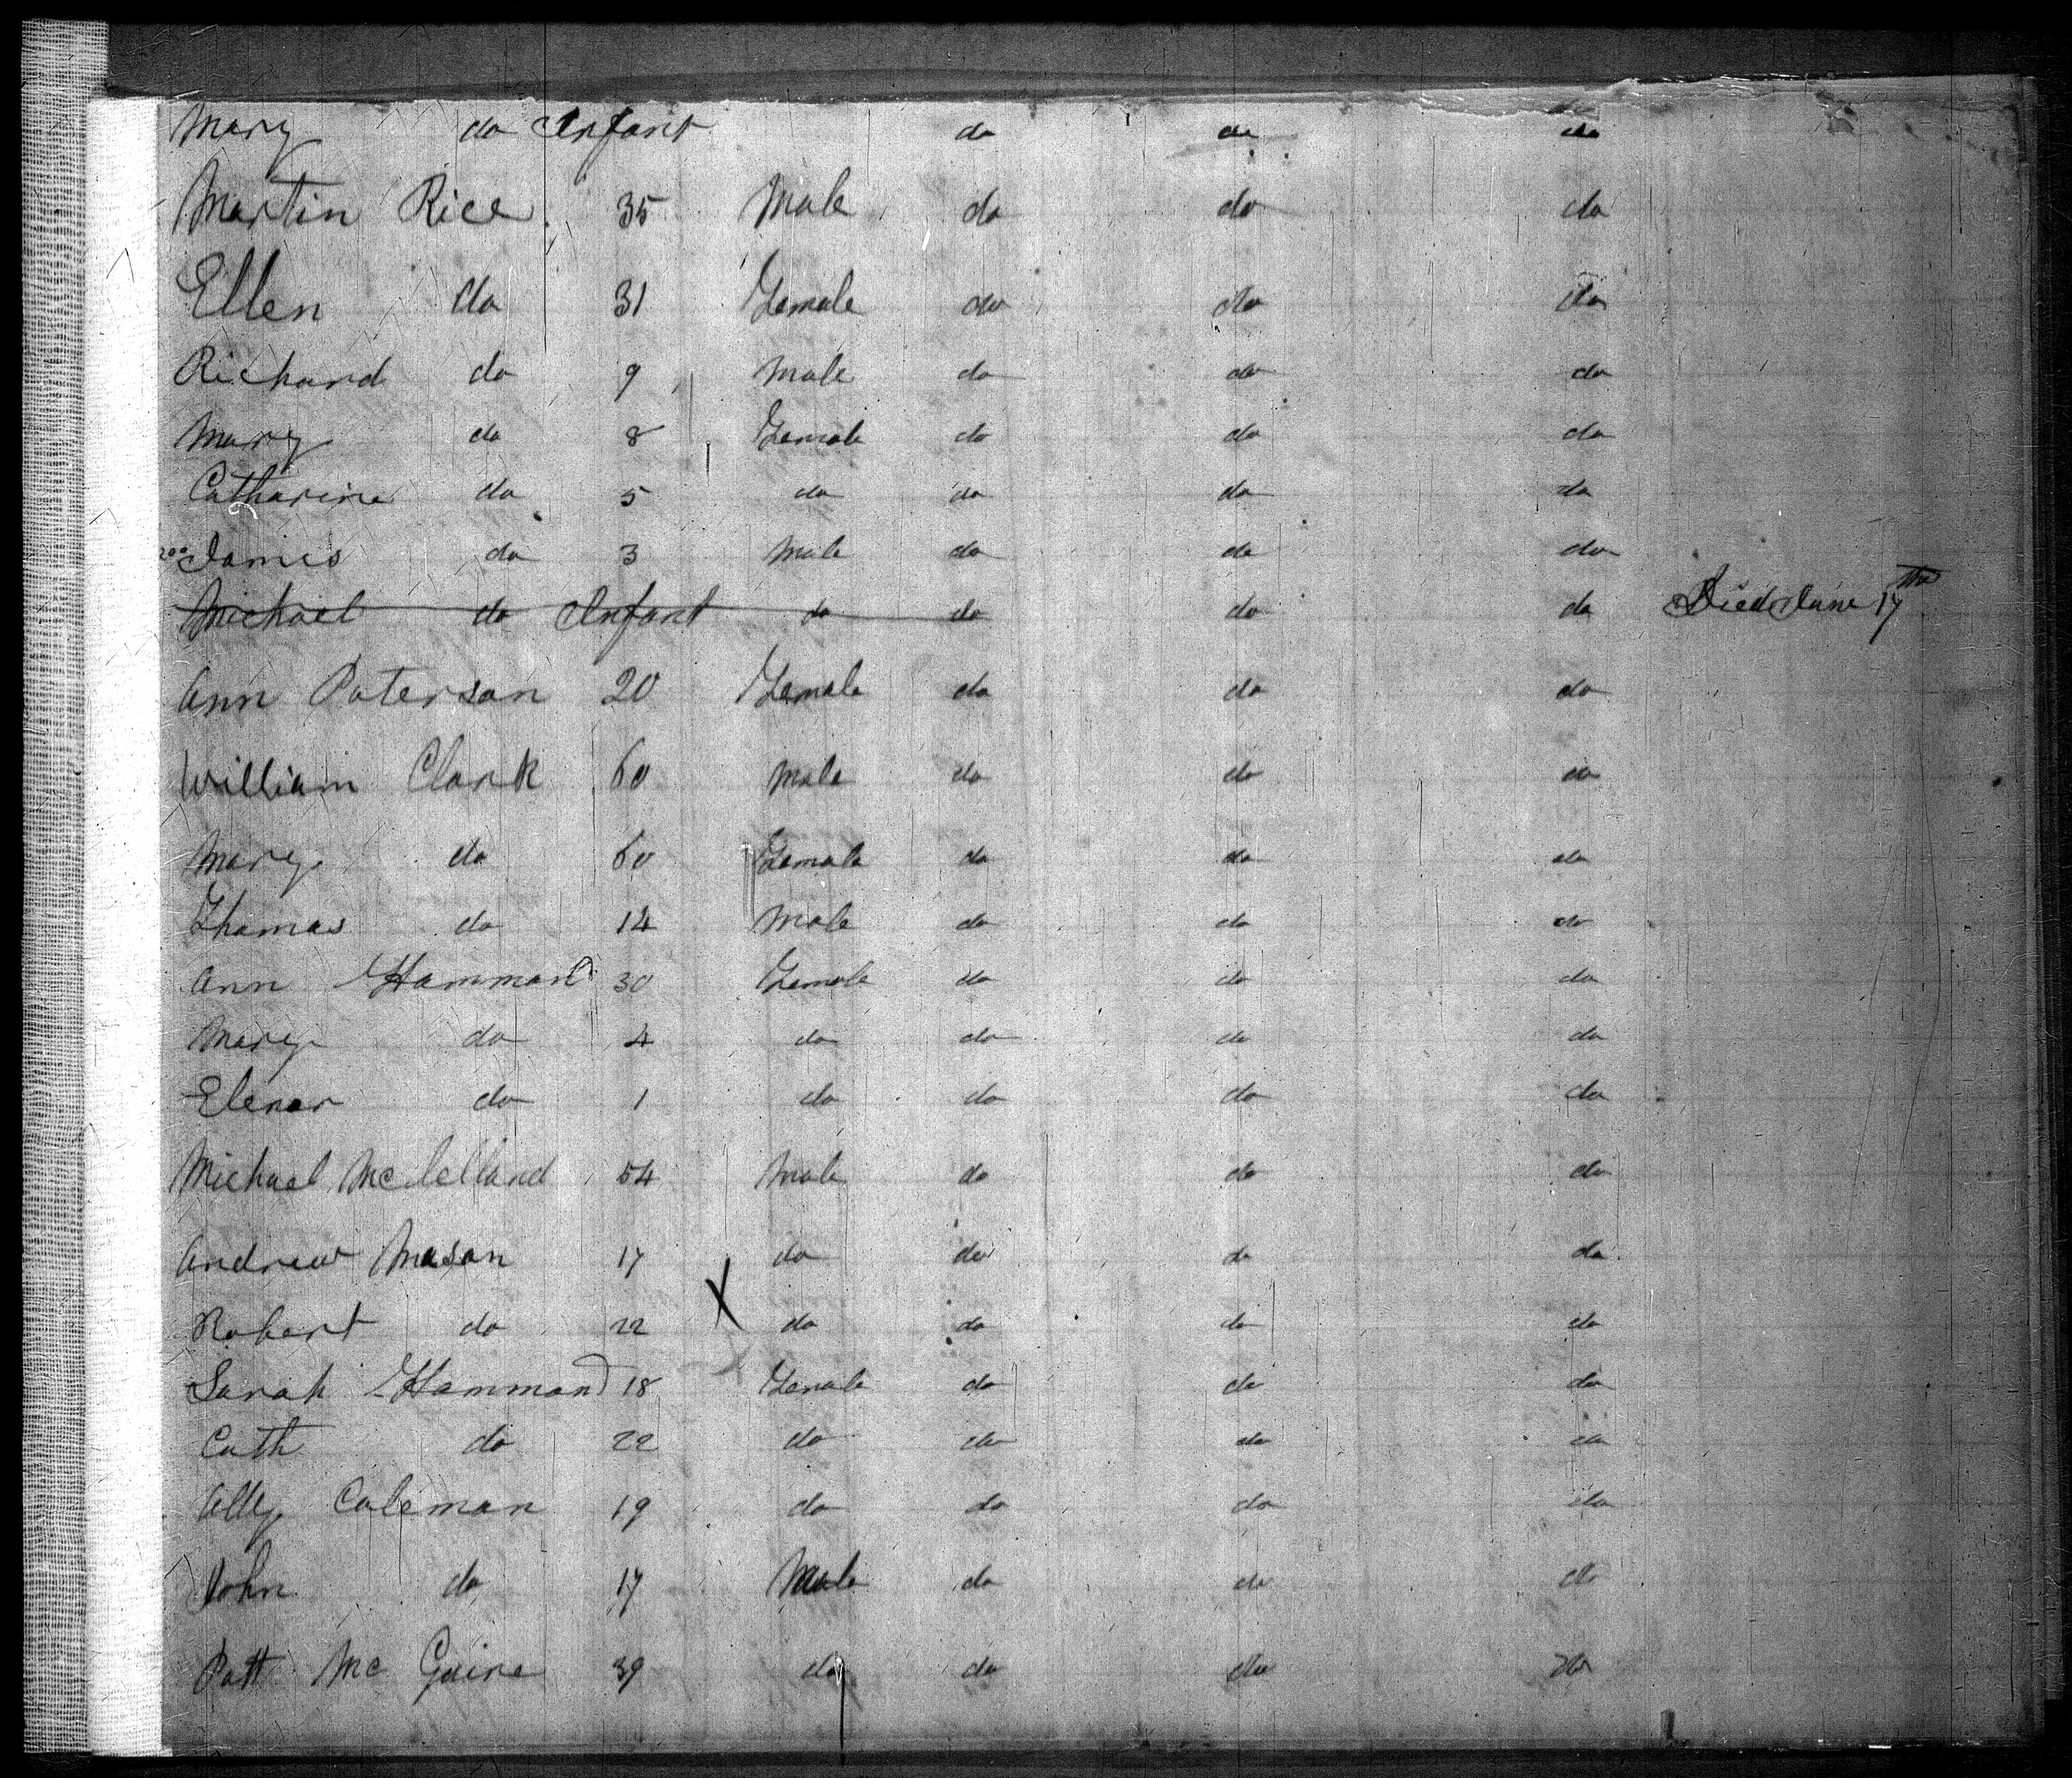 Mary do Infant do do do
Martin Rice 35 Male do do do
Ellen do 31 Female do do do
Richard do 9 Male do do do
Mary do 8 Female do do do
Catharine do 5 do do do do
200 James do 3 Male do do do
Michael do Infant do do do do Died June 17th
Ann Paterson 20 Female do do do
William Clark 60 Male do do do
Mary do 60 Female do do do
Thomas do 14 Male do do do
Ann Hammond 30 Female do do do
Mary do 4 do do do do
Elenor do 1 do do do do
Michael McClelland 54 Male do do do
Andrew Mason 17 do do do do
Robert do 22 X do do do do
Sarah Hammond 18 Female do do do
Cath do 22 do do do do
Ally Coleman 19 do do do do
John do 17 Male do do do
Patt Mc Guire 39 do do do do